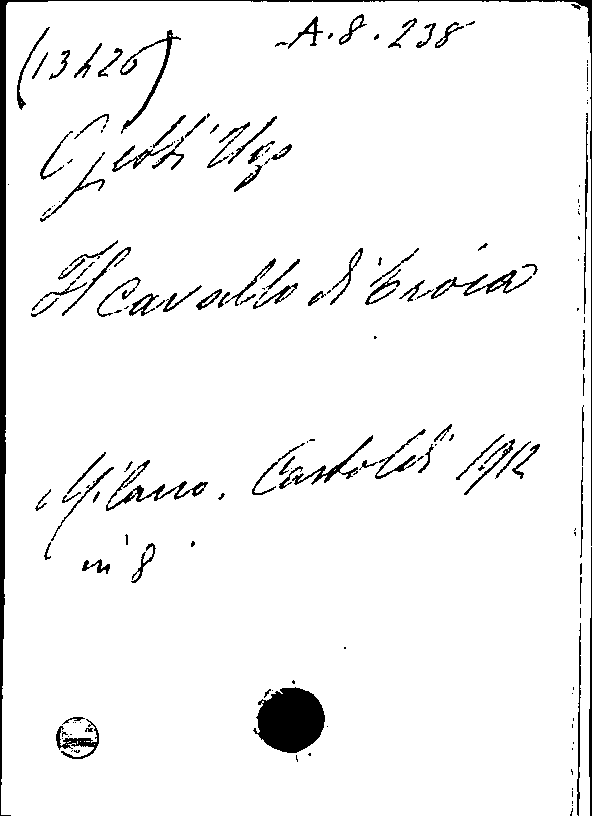 (13426) A.8.238
Ghetti Ugo
Il cavallo di troia
Milano. Castoldi 1912
in 8